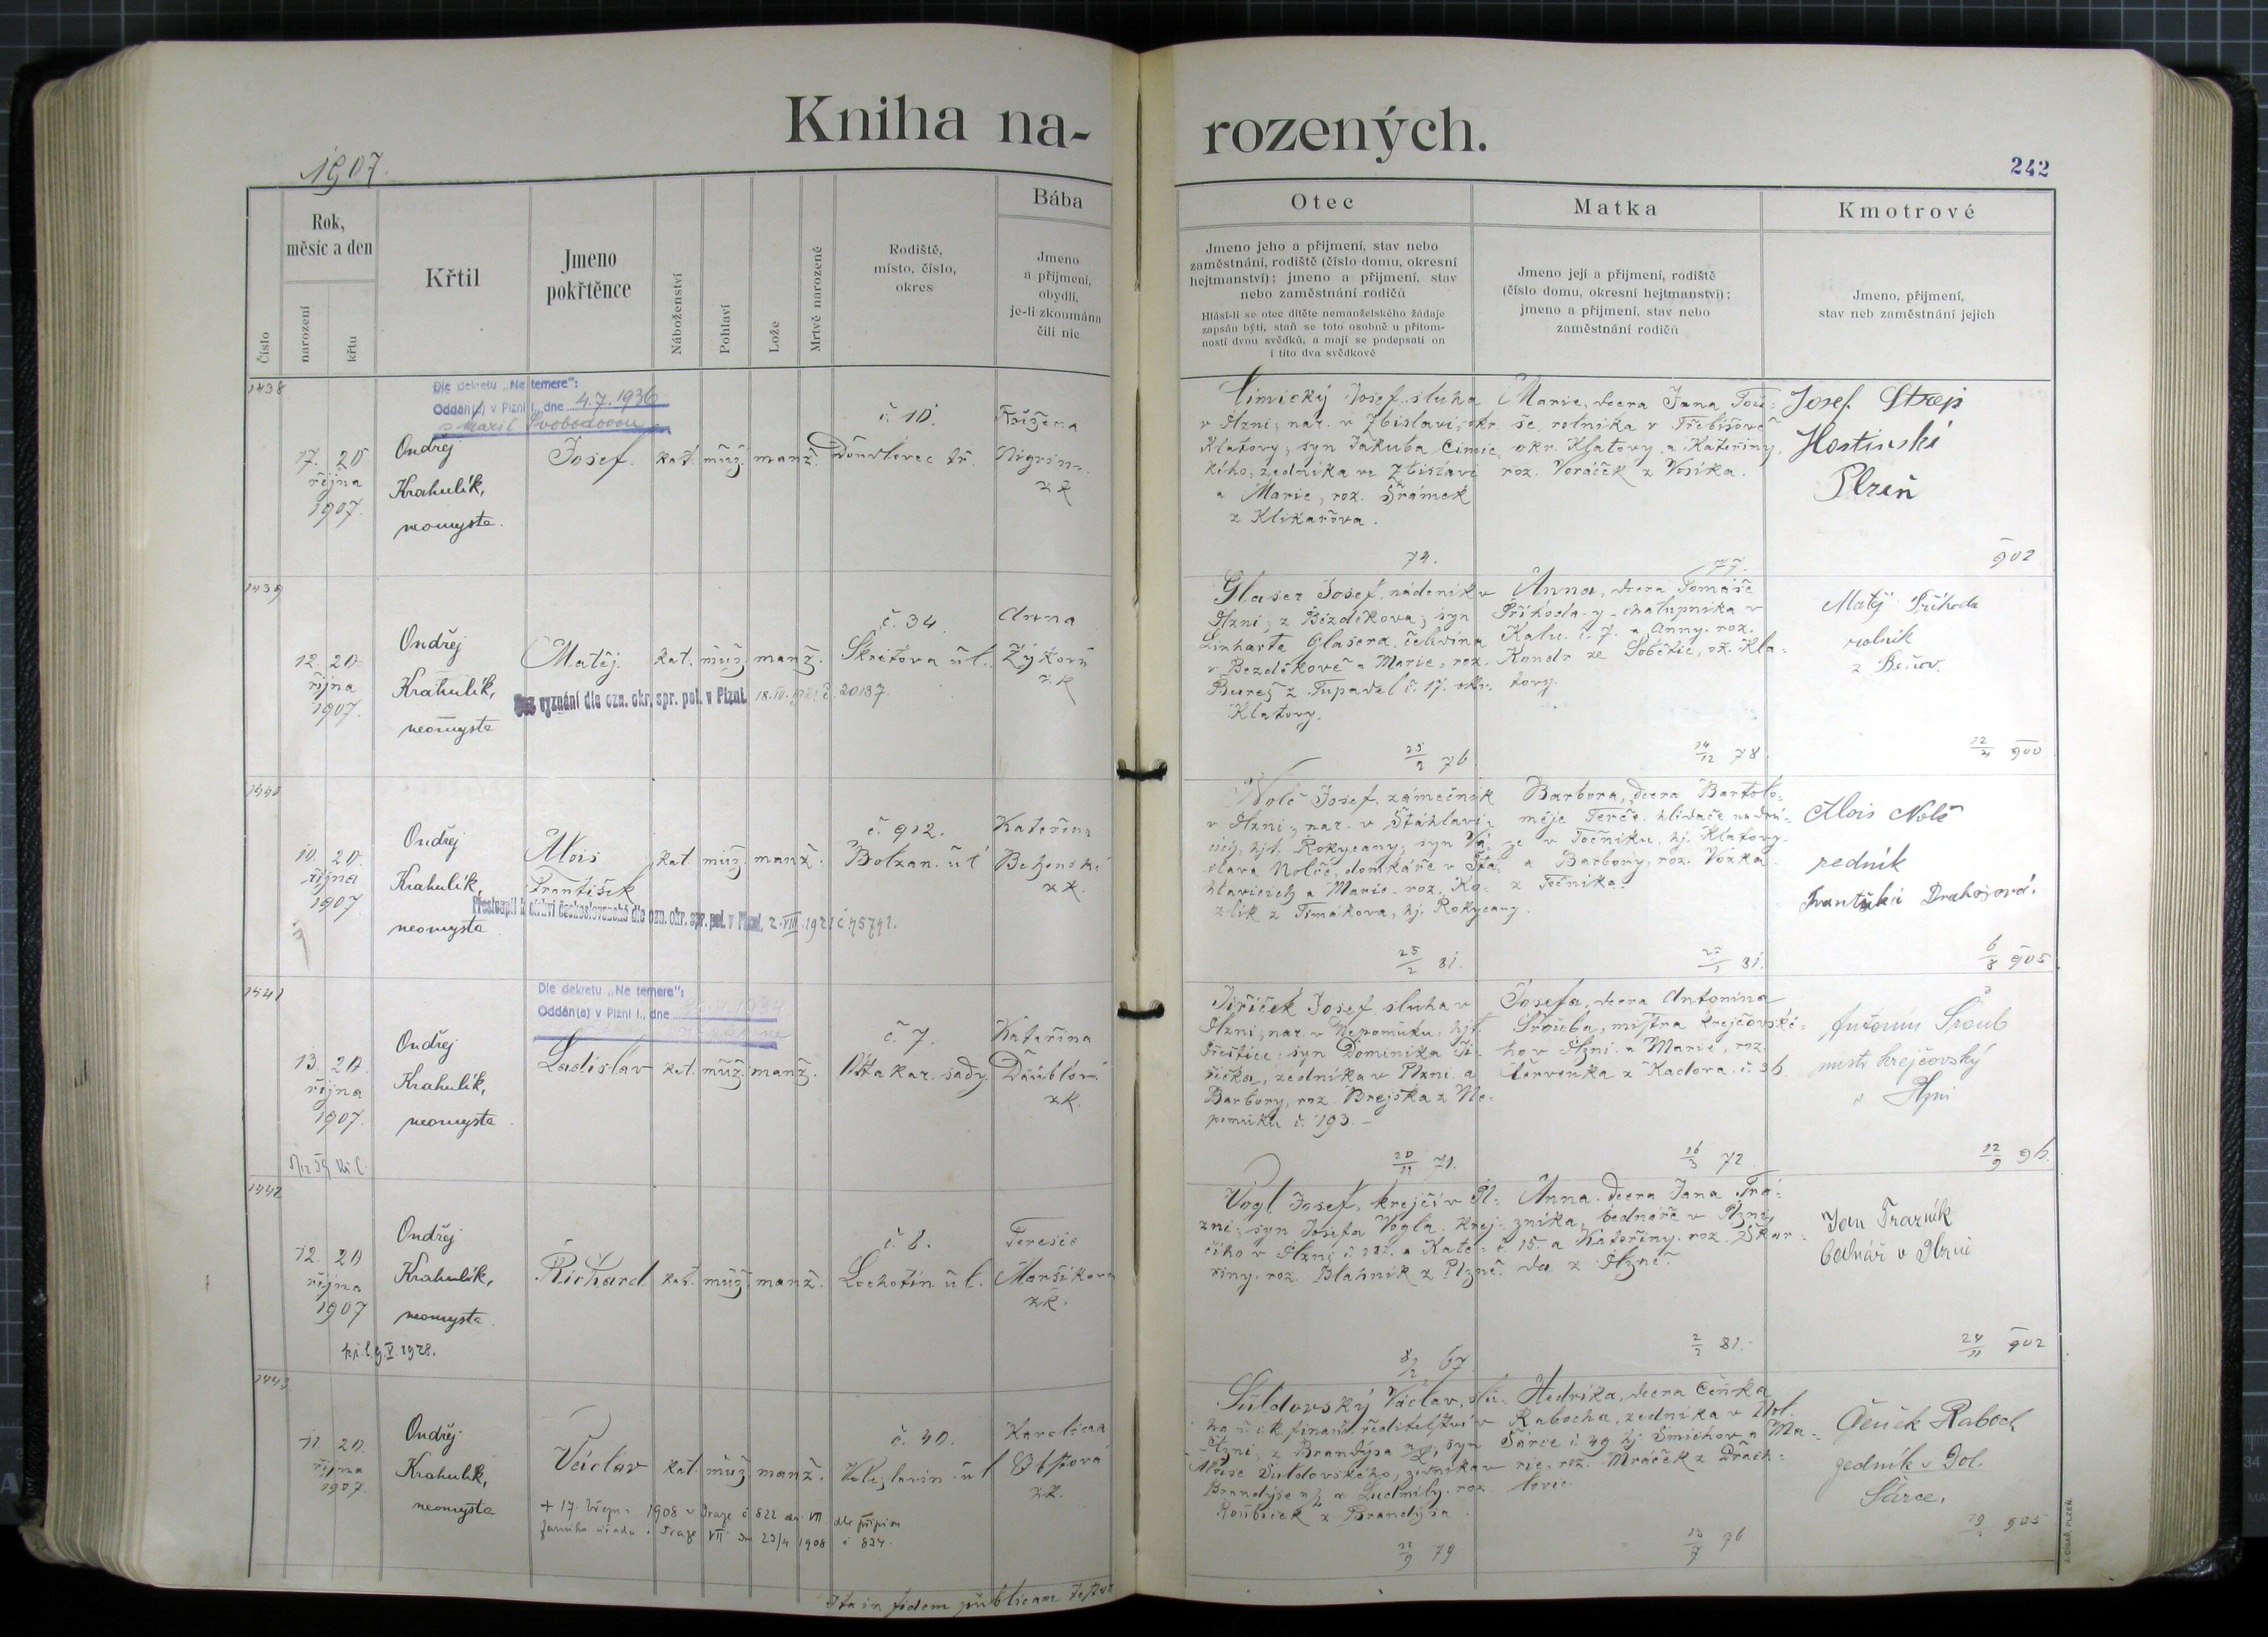 Kniha na-
rozených.
1907.
242
Číslo
Rok,
měsíc a den
narození
křtu
Křtil
Jmeno
pokřtěnce
Náboženství
Pohlaví
Lože
Mrtvě narozené
Rodiště,
místo, číslo,
okres
Bába
Jmeno
a přijmení,
obydlí,
je-li zkoumána
čili nic
Otec
Jmeno jeho a přijmení, stav nebo
zaměstnání, rodiště (číslo domu, okresní
hejtmanství); jmeno a přijmení, stav
nebo zaměstnání rodičů
Hlásí-li se otec dítěte nemanželského žádaje
zapsán býti, staň se toto osobně u přítom-
nosti dvou svědků, a mají se podepsati on
i tito dva svědkové
Matka
Jmeno její a přijmení, rodiště
(číslo domu, okresní hejtmanství);
jmeno a přijmení, stav nebo
zaměstnání rodičů
Kmotrové
Jmeno, přijmení,
stav neb zaměstnání jejich
1438
Dle dekretu „Ne temere":
Oddán(a) v Plzni I., dne 4.7.1936
s Marií Svobodovou
17. 20
října
1907.
Ondřej
Krahulík,
neomysta.
Josef.
kat. muž. manž.
č. 10.
Růžena
Nigrin
zk
Cimický Josef, sluha
v Plzni, nar. v Zbislavi, okr.
Klatovy, syn Jakuba Cimic
kého, zedníka ve Zbislavi
a Marie, roz. Šrámek
z Klikařova.
74.
Marie, dcera Jana
še, rolníka v Třebíšově
okr. Klatovy a Kateřiny,
roz. Voráček z Vosíka.
77.
Josef Strejs
Hostinský
Plzeň
902
1439
12. 20.
října
1907.
Ondřej
Krahulík,
neomysta
Matěj.
kat. muž. manž.
č. 34.
Skrétova ul.
Anna
Zýková
zk
Bez vyznání dle ozn. okr. spr. pol. v Plzni. 20137.
Glaser Josef, nádeník v
Plzni, z Bezděkova, syn
Linharta Glasera, čeledína
v Bezděkově a Marie, roz.
Bureš z Tupadel č. 17. okr.
Klatovy.
25/2 76
Anna, dcera Tomáše
Příhody, chalupníka v
Kalu č. 7. a Anny, roz.
Kondr ze Soběšic, ok. Kla-
tovy.
14/12 78.
Matěj Příhoda
rolník
12/2 900
1440
10. 20.
října
1907
Ondřej
Krahulík,
neomysta
Alois
František
kat muž. manž.
č. 912.
Bolzan. ul
Kateřina
zk.
Přestoupil k církvi československé dle ozn. okr. spr. pol. v Plzni, 2.VIII.1921 č 45741.
Nolč Josef, zámečník
v Plzni, nar. v Šťáhlavi-
cích, hjt. Rokycany, syn Vá-
clava Nolče, domkáře v Šťá-
hlavicích a Marie roz. Ko-
zlík z Timákova, hj. Rokycany.
25/2 81.
Barbora, dcera Bartolo-
měje Terče, hlídače na drá-
ze v Točníku, hj. Klatovy
a Barbory, roz. Vozka
z Točníka.
81.
Alois Nolč
zedník
Františka Drahošová.
6/8 905
1441
Dle dekretu „Ne temere":
Oddán(a) v Plzni I., dne
13. 20.
října
1907.
Ondřej
Krahulík,
neomysta.
Ladislav
kat. muž. manž.
č. 7.
Ottakar. sady.
Kateřina
Daublová
zk.
Jiříček Josef sluha v
Plzni, nar. v Nepomuku, hjt.
Přeštice, syn Dominika Ji-
říčka, zedníka v Plzni a
Barbory, roz. Brejška z Ne-
pomuku č. 193. —
20/11 71.
Josefa, dcera Antonína
Šrouba, mistra krejčovské-
ho v Plzni a Marie, roz.
Červenka z Kaclova č. 36.
16/3 72
Antonín Šroub
mistr krejčovský
v Plzni
12/9 96.
1442
12. 20
října
1907
Ondřej
Krahulík,
neomysta.
9.V.1928.
Richard
kat. muž. manž.
č. 8.
Lochotín. ul.
Terezie
Maršíková
zk.
Vogl Josef, krejčí v Pl-
zni, syn Josefa Vogla, krej-
čího v Plzni č a Kate-
řiny, roz. Blahník z Plzně.
8/12 67
Anna, dcera Jana Tra-
zníka, bednáře v Plzni
č. 15. a Kateřiny, roz. Škar-
da z Plzně.
2/2 81.
Jan Trazník
bednář v Plzni
24/11 902
1443
11. 20.
října
1907.
Ondřej
Krahulík,
neomysta
Václav
kat. muž. manž.
č. 40.
Karolina
zk.
+ 17. března 1908 v Praze č 822 VII. dle přípisu
farního úřadu v Praze VII 23/4 1908 č 834.
Suldovský Václav, slu-
ha c. k. finanč. ředitelství v
Plzni, z Brandýsa n/L, syn
Aloise Suldovského, zedníka v
Brandýse n/L a Ludmily, roz.
Roubíček z Brandýsa.
79
Hedvika, dcera Čeňka
Rabocha, zedníka v Dol.
Šárce č 49 hj. Smíchov a Ma-
rie, roz. Mráček z Drach-
lovic.
76
Čeněk Raboch
zedník v Dol.
Šárce.
905
Ita in fidem publicam testor
J. CÍSAŘ, PLZEŇ.